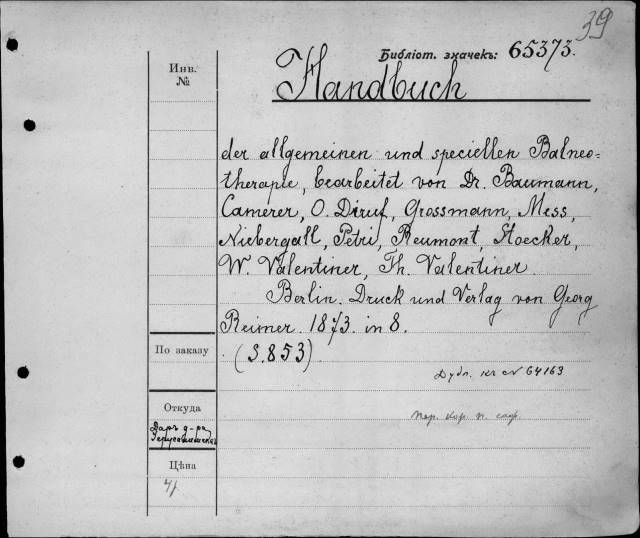 39
Библіот. значекъ: 65373.
Инв.
№
Handbuch
der allgemeinen und speciellen Balneo=
therapie, bearbeitet von Dr. Baumann,
Camerer, O. Diruf, Grossmann, Mess,
Niebergall, Petri, Reumont, Stoecker,
W. Valentiner, Th. Valentiner.
Berlin. Druck und Verlag von Georg
Reimer. 1873. in 8.
По заказу
(S. 853)
Дубл. къ № 64163
Откуда
Даръ д-ра
Цѣна